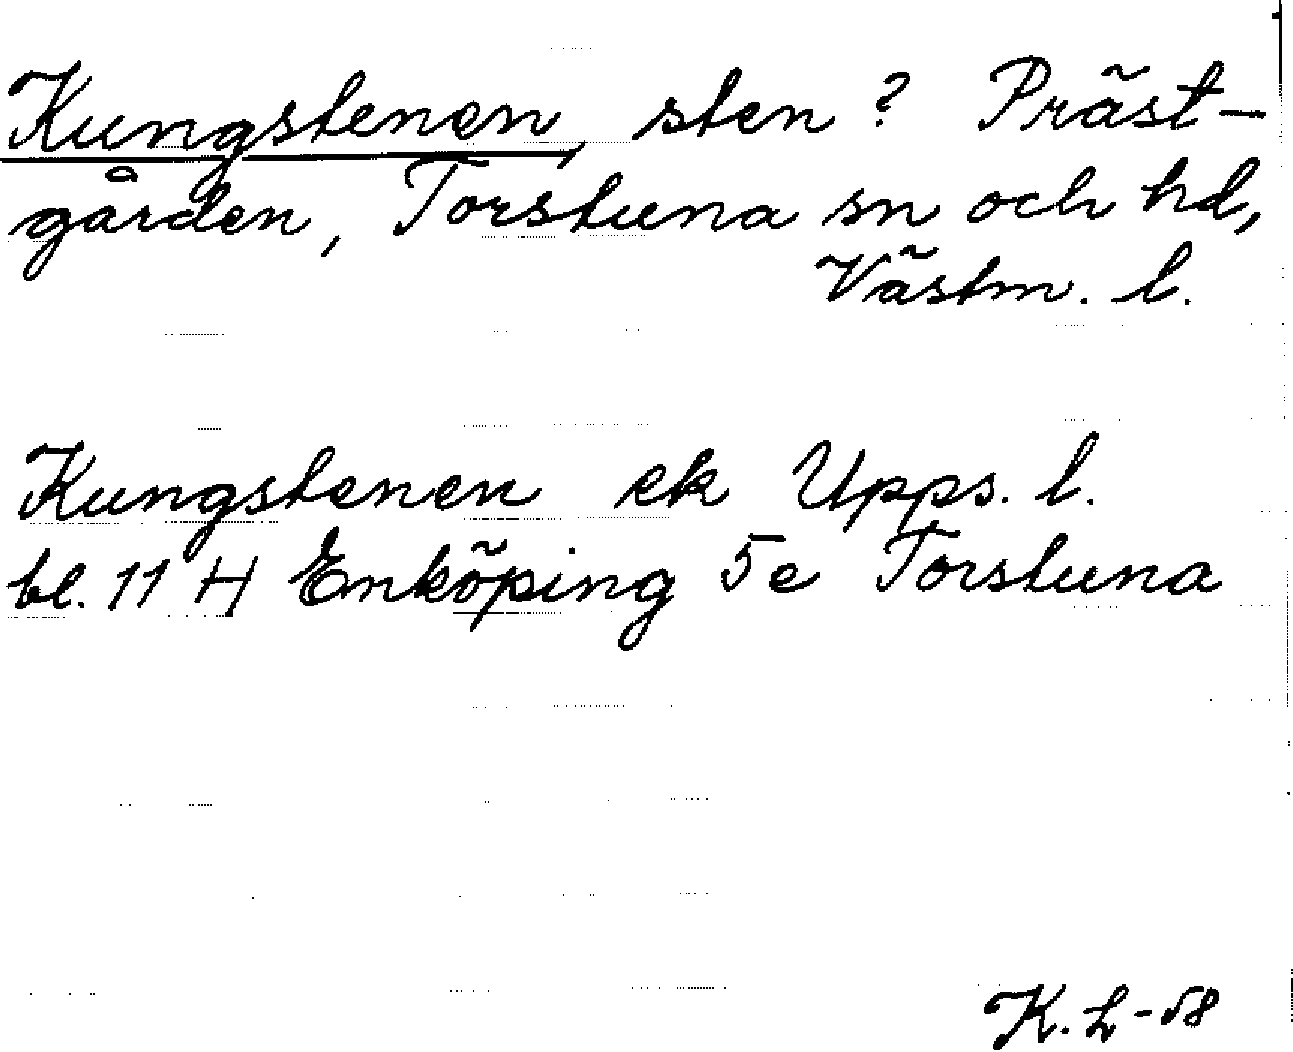 Kungstenen, sten? Präst-
gården, Torstuna sn och hd,
Västm. l.
Kungstenen ek Upps. l.
bl. 11 H Enköping 5e Torstuna
K. L-58